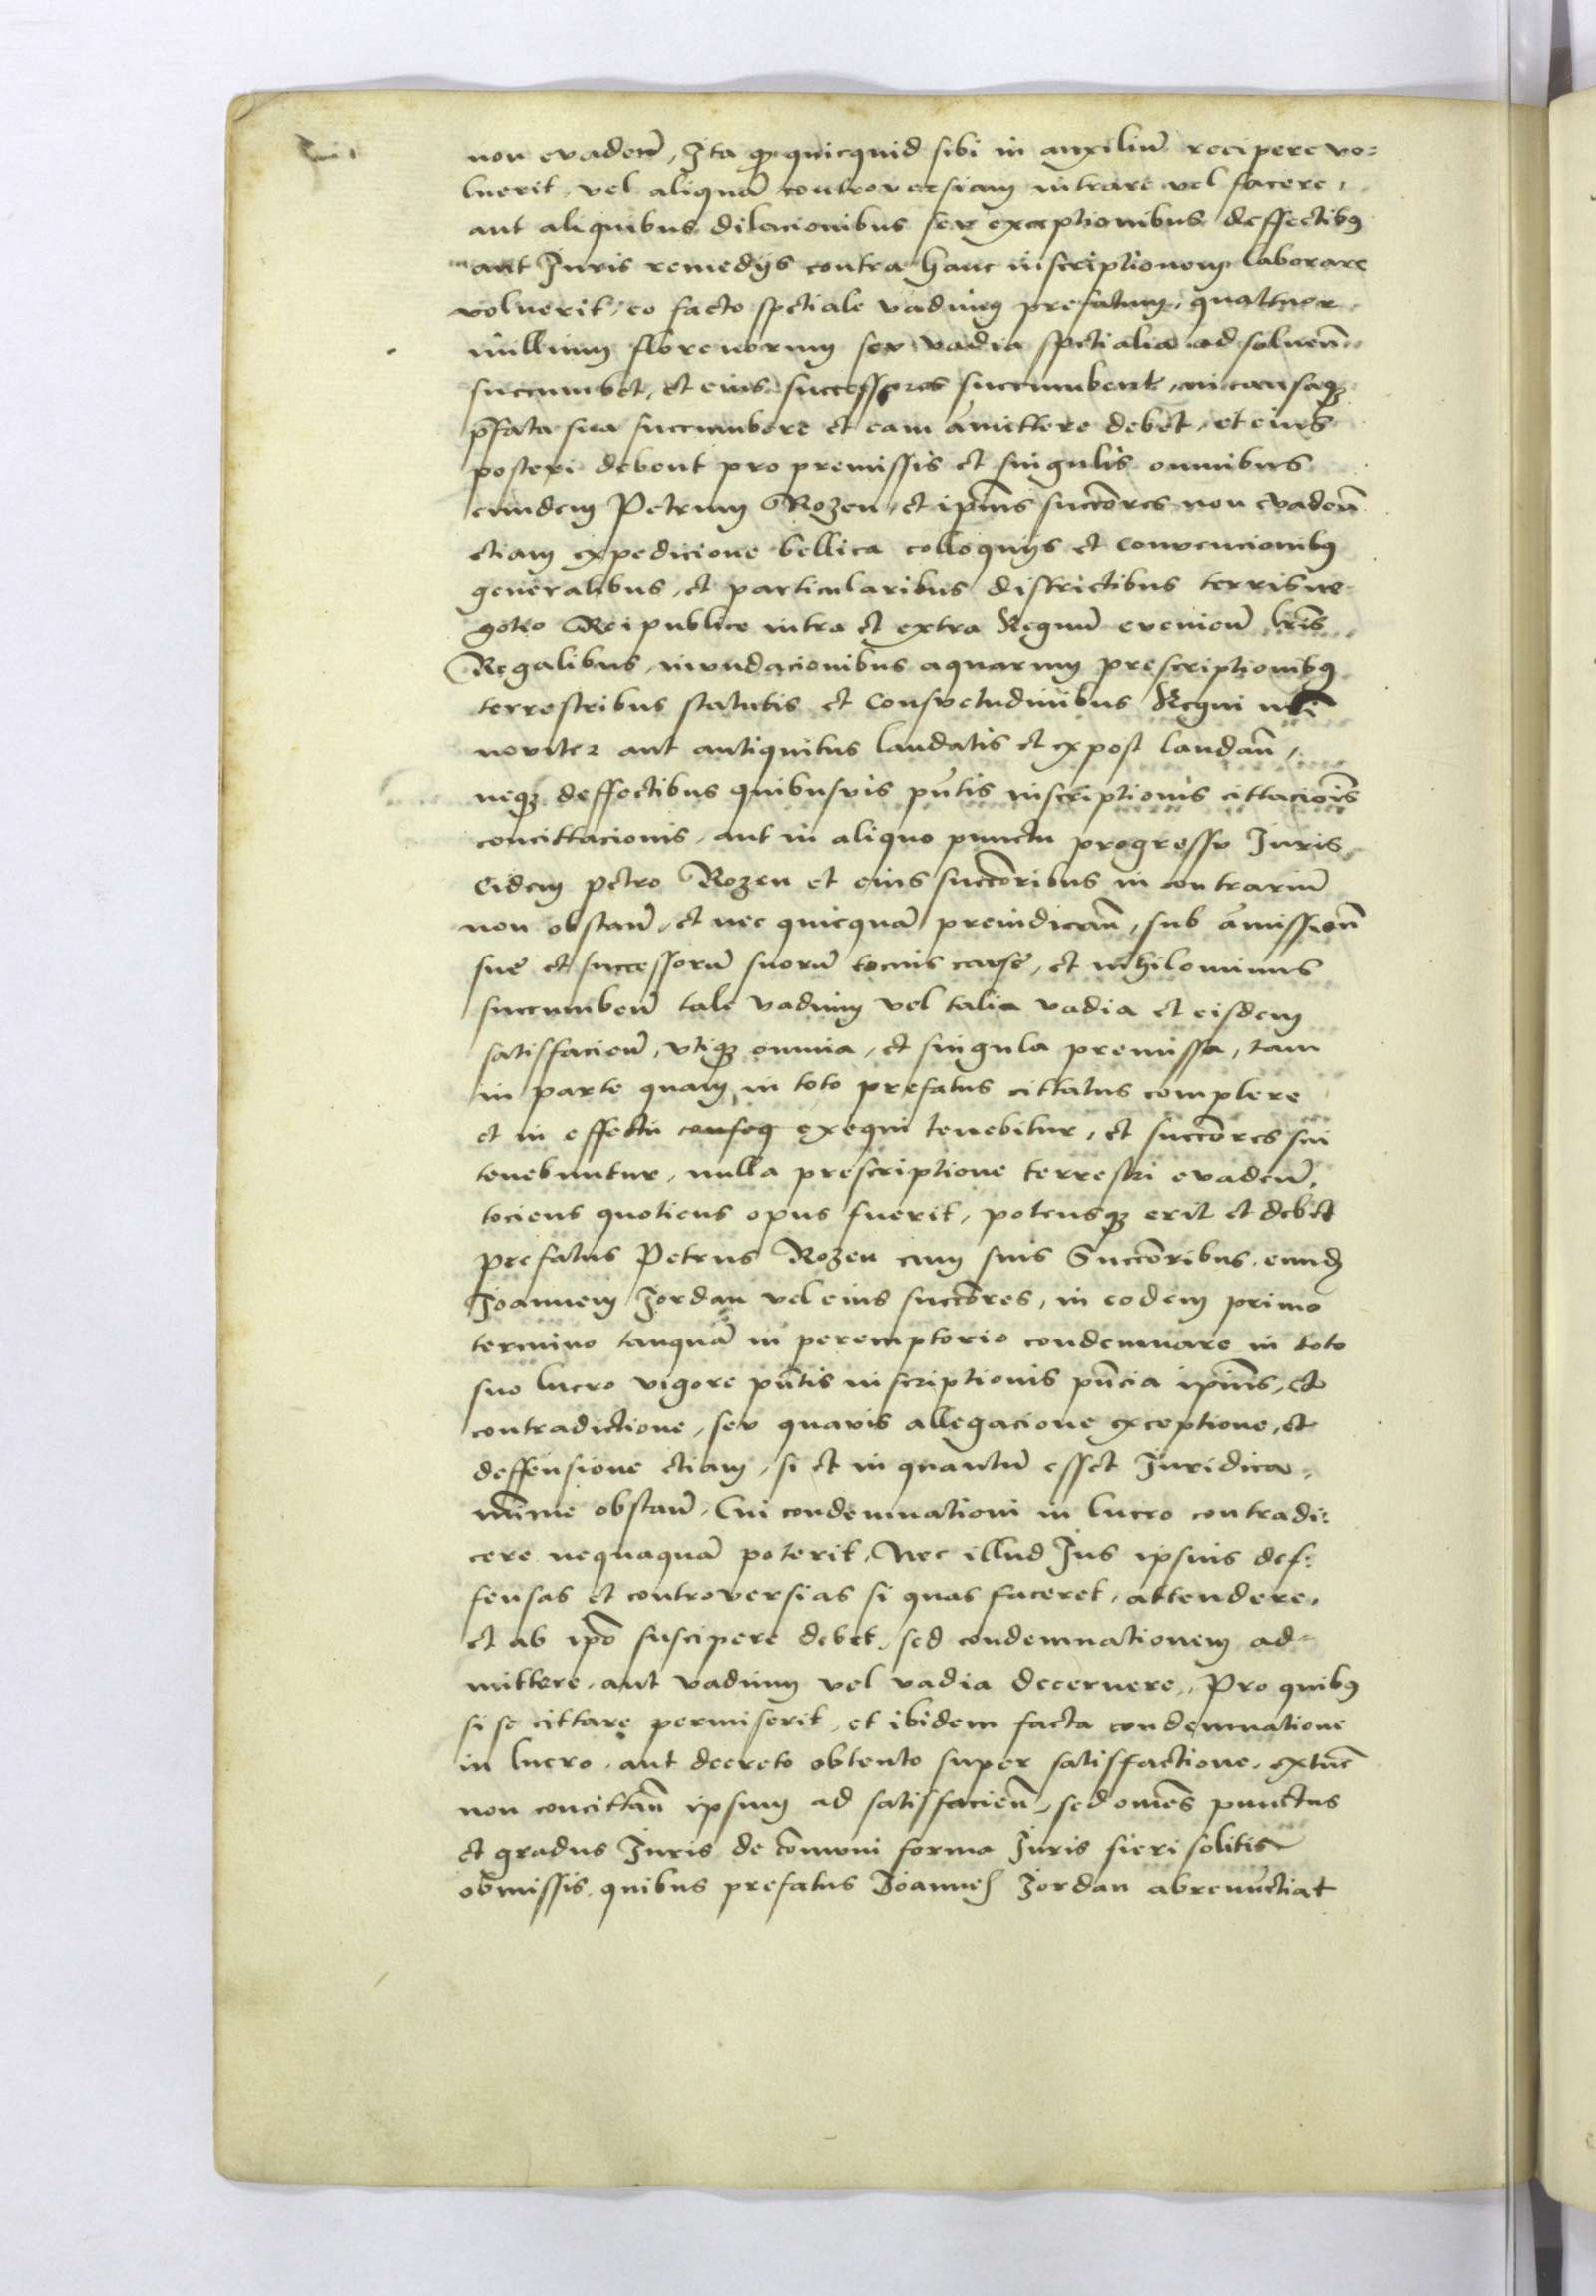 non evadeñ, Ita qƺ quicquid sibi in auxiliū recipere vo=
luerit, vel aliquā controversiam intrare vel facere,
aut aliquibus dilacionibus seu exceptionibus deffectibꝯ
aut Iuris remedijs contra hanc inscriptionem laborare
voluerit, eo facto spetiale vadium prefatum, quattuor
millium florenorum seu vadia spetialia ad solueñ
succumbet, et eius successores succumbent, in causaqꝫ
p̄fata sua succumbere et eam āmittere debet, et eius
posteri debent pro premissis et singulis omnibus
eundem Petrum Rozen, et ip̄ius succ̄ores non evadeñ
etiam expedicione bellica colloquijs et convencionibꝯ
generalibus, et particularibus districtibus terris ne
gotio Reipublice intra et extra Regnū evenieñ lr̄is
Regalibus, inundacionibus aquarum prescriptionibꝯ
terrestribus statutis et consuetudinibus Regni
noviter aut antiquitus laudatis et expost laudañ,
neqꝫ deffectibus quibusvis pn̄tis inscriptionis cittacioīs
concittacionis, aut in aliquo punctu progressu Iuris
Eidem Petro Rozen et eius succ̄oribus in contrariū
non obstañ, et nec quicquā preiudicañ, sub āmissioñ
sue et successorū suorū tocius cause, et nihilominus
succumbeñ tale vadium vel talia vadia et eisdem
satisfacieñ, vtiqꝫ omnia, et singula premissa, tam
in parte quam in toto prefatus cittatus complere
et in effectu conseq exequi tenebitur, et succ̄ores sui
tenebuntur, nulla prescriptione terrestri evadeñ,
tociens quotiens opus fuerit, potensqꝫ erit et debet
prefatus Petrus Rozen cum suis Succ̄oribus, eund̄
Joannem Jordan vel eius succ̄ores, in eodem primo
termino tanquā in peremptorio condemnare in toto
suo lucro vigore pn̄tis inscriptionis pn̄cia ip̄ius, et
contradictione, seu quavis allegacione exceptione, et
deffensione etiam, si et in quantū esset Iuridica,
mīnime obstañ, Cui condemnationi in lucro contradi=
cere nequaquā poterit, Nec illud Ius ipsius def=
fensas et controversias si quas faceret, attendere,
et ab ip̄o suscipere debet, sed condemnationem ad=
mittere, aut vadium vel vadia decernere, Pro quibꝯ
si se cittare permiserit, et ibidem facta condemnatione
in lucro, aut decreto obtento super satisfactione, extūc
non concittañ ipsum ad satisfacieñ, sed om̄es punctus
et gradus Iuris de cōmuni forma Iuris fieri solitis
obmissis, quibus prefatus Joannes Jordan abrenūctiat